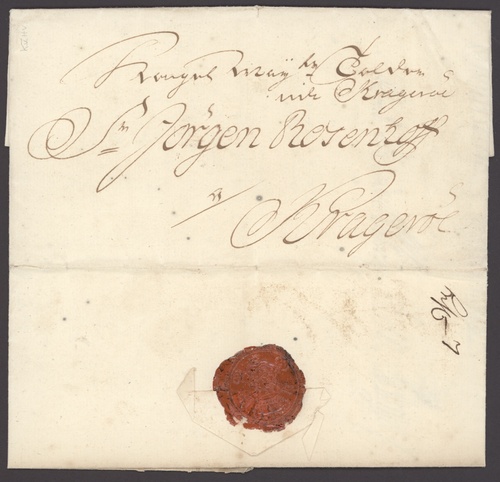 Kongel May.ts Tolder
udi Kragerøe
Sr Jørgen Rosenhoff
a
Kragerøe